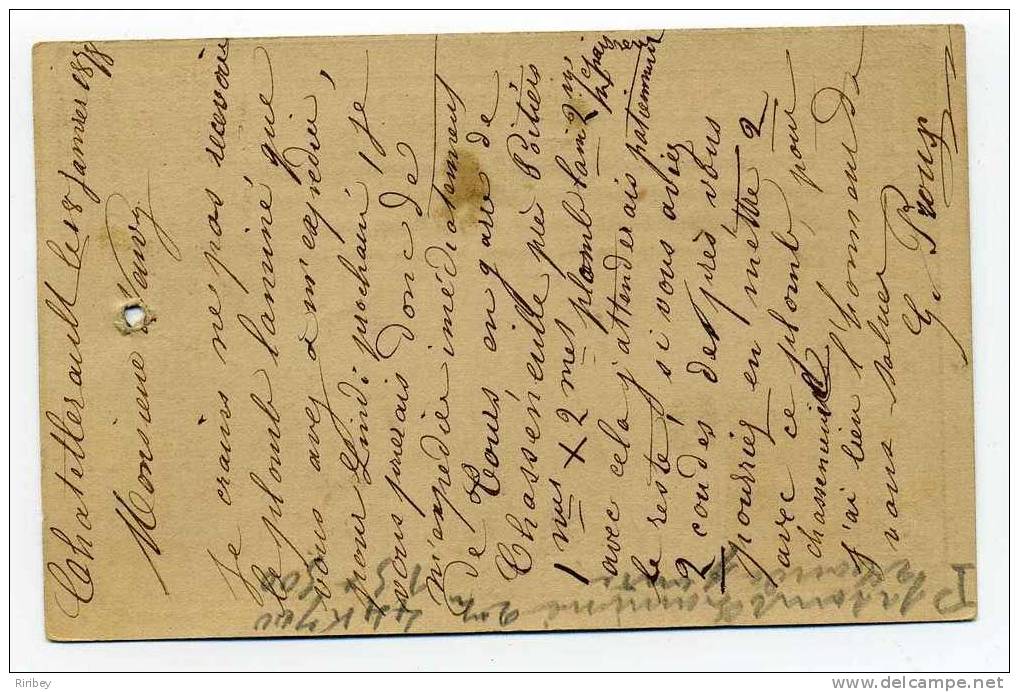 Chatellerault le 18 Janvier 1878
Monsieur
Je crains ne pas recevoir
le plomb laminé que
vous avez à m'expédier,
pour Lundi prochain, je
vous prierais donc de
m'expédier imédiatement
de Tours en gare de
Chasseneuil près Poitiers
1 mus × 2 mes plomb lami 2 m/
avec cela j'attenderais patiemment
le reste, si vous aviez
2 coudes de près vous
pourriez en mettre 2
avec ce plomb, pour
chasseneuil
J'ai bien l'honneur de
vous saluer
G. Prouy
Riribey
delcampe.net